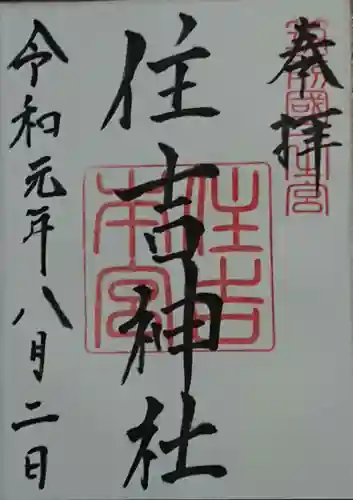 奉拝
住吉神社
令和元年八月二日
住吉
本宮